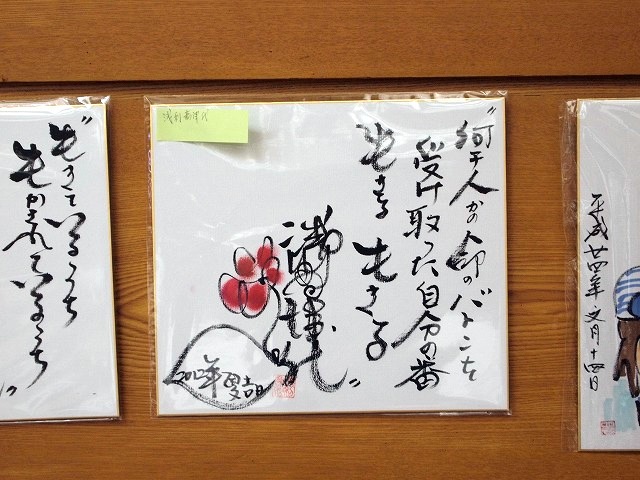 平成廿四年文月十四日
"何千人かの命のバトンを
受け取った自分の番
生きる 生きる"
2012年 夏吉日
"生きているうち
生かされているうち"